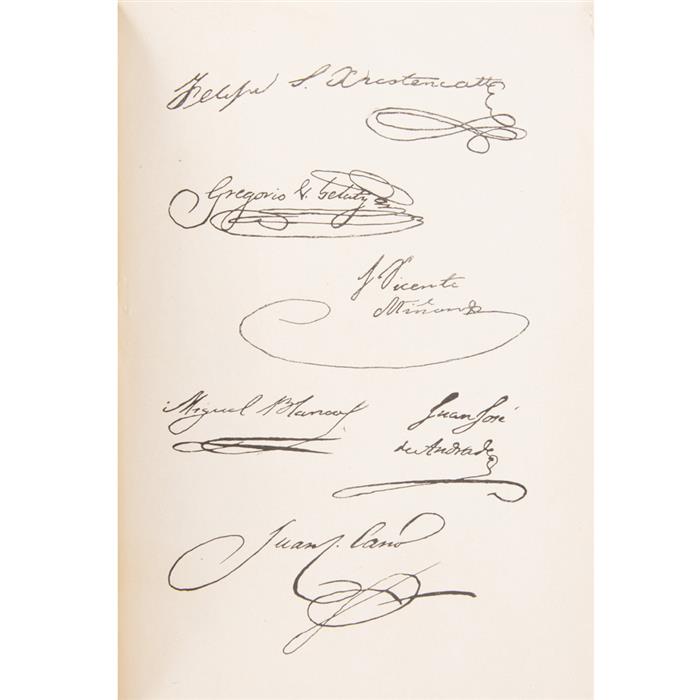 Felipe S. Xrestencatte
Gregorio V. Gelaty
J Vicente
Miñon
Miguel Blanco
Juan José
de Andrade
Juan J. Cano